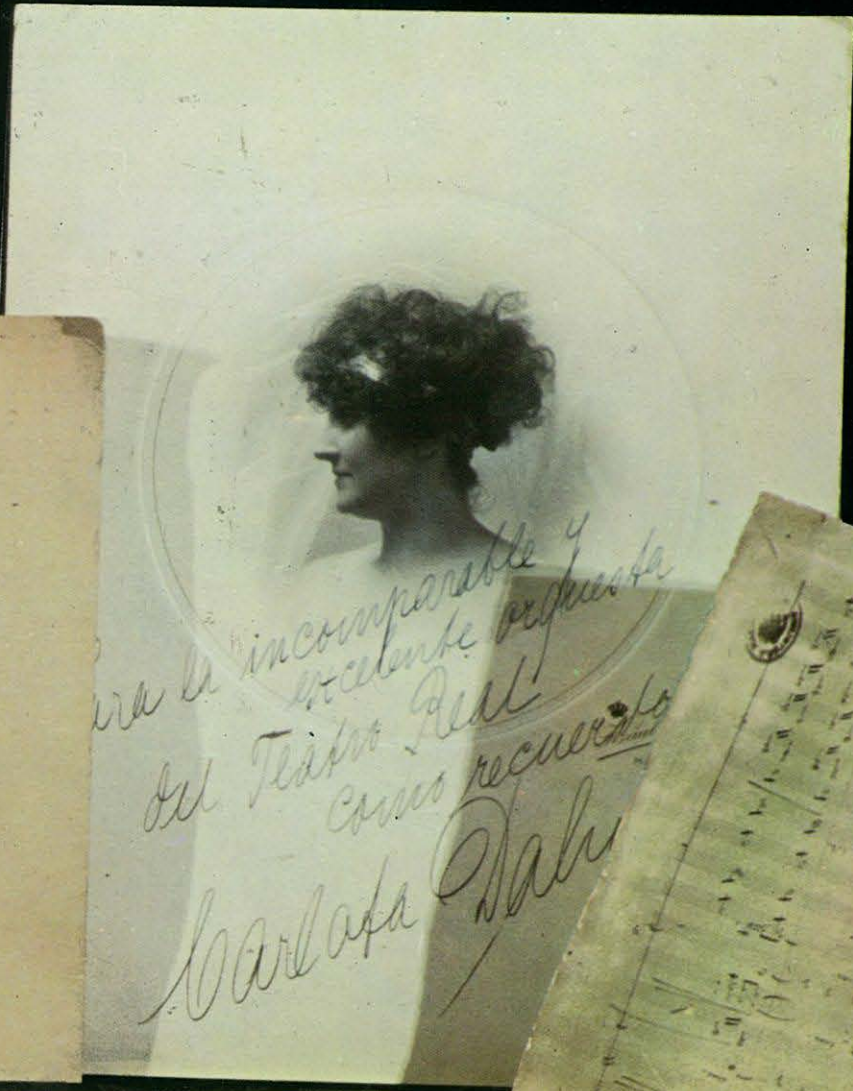 ara la incomparable y
excelente orquesta
del Teatro Real
como recuerdo
Carlota Dahm